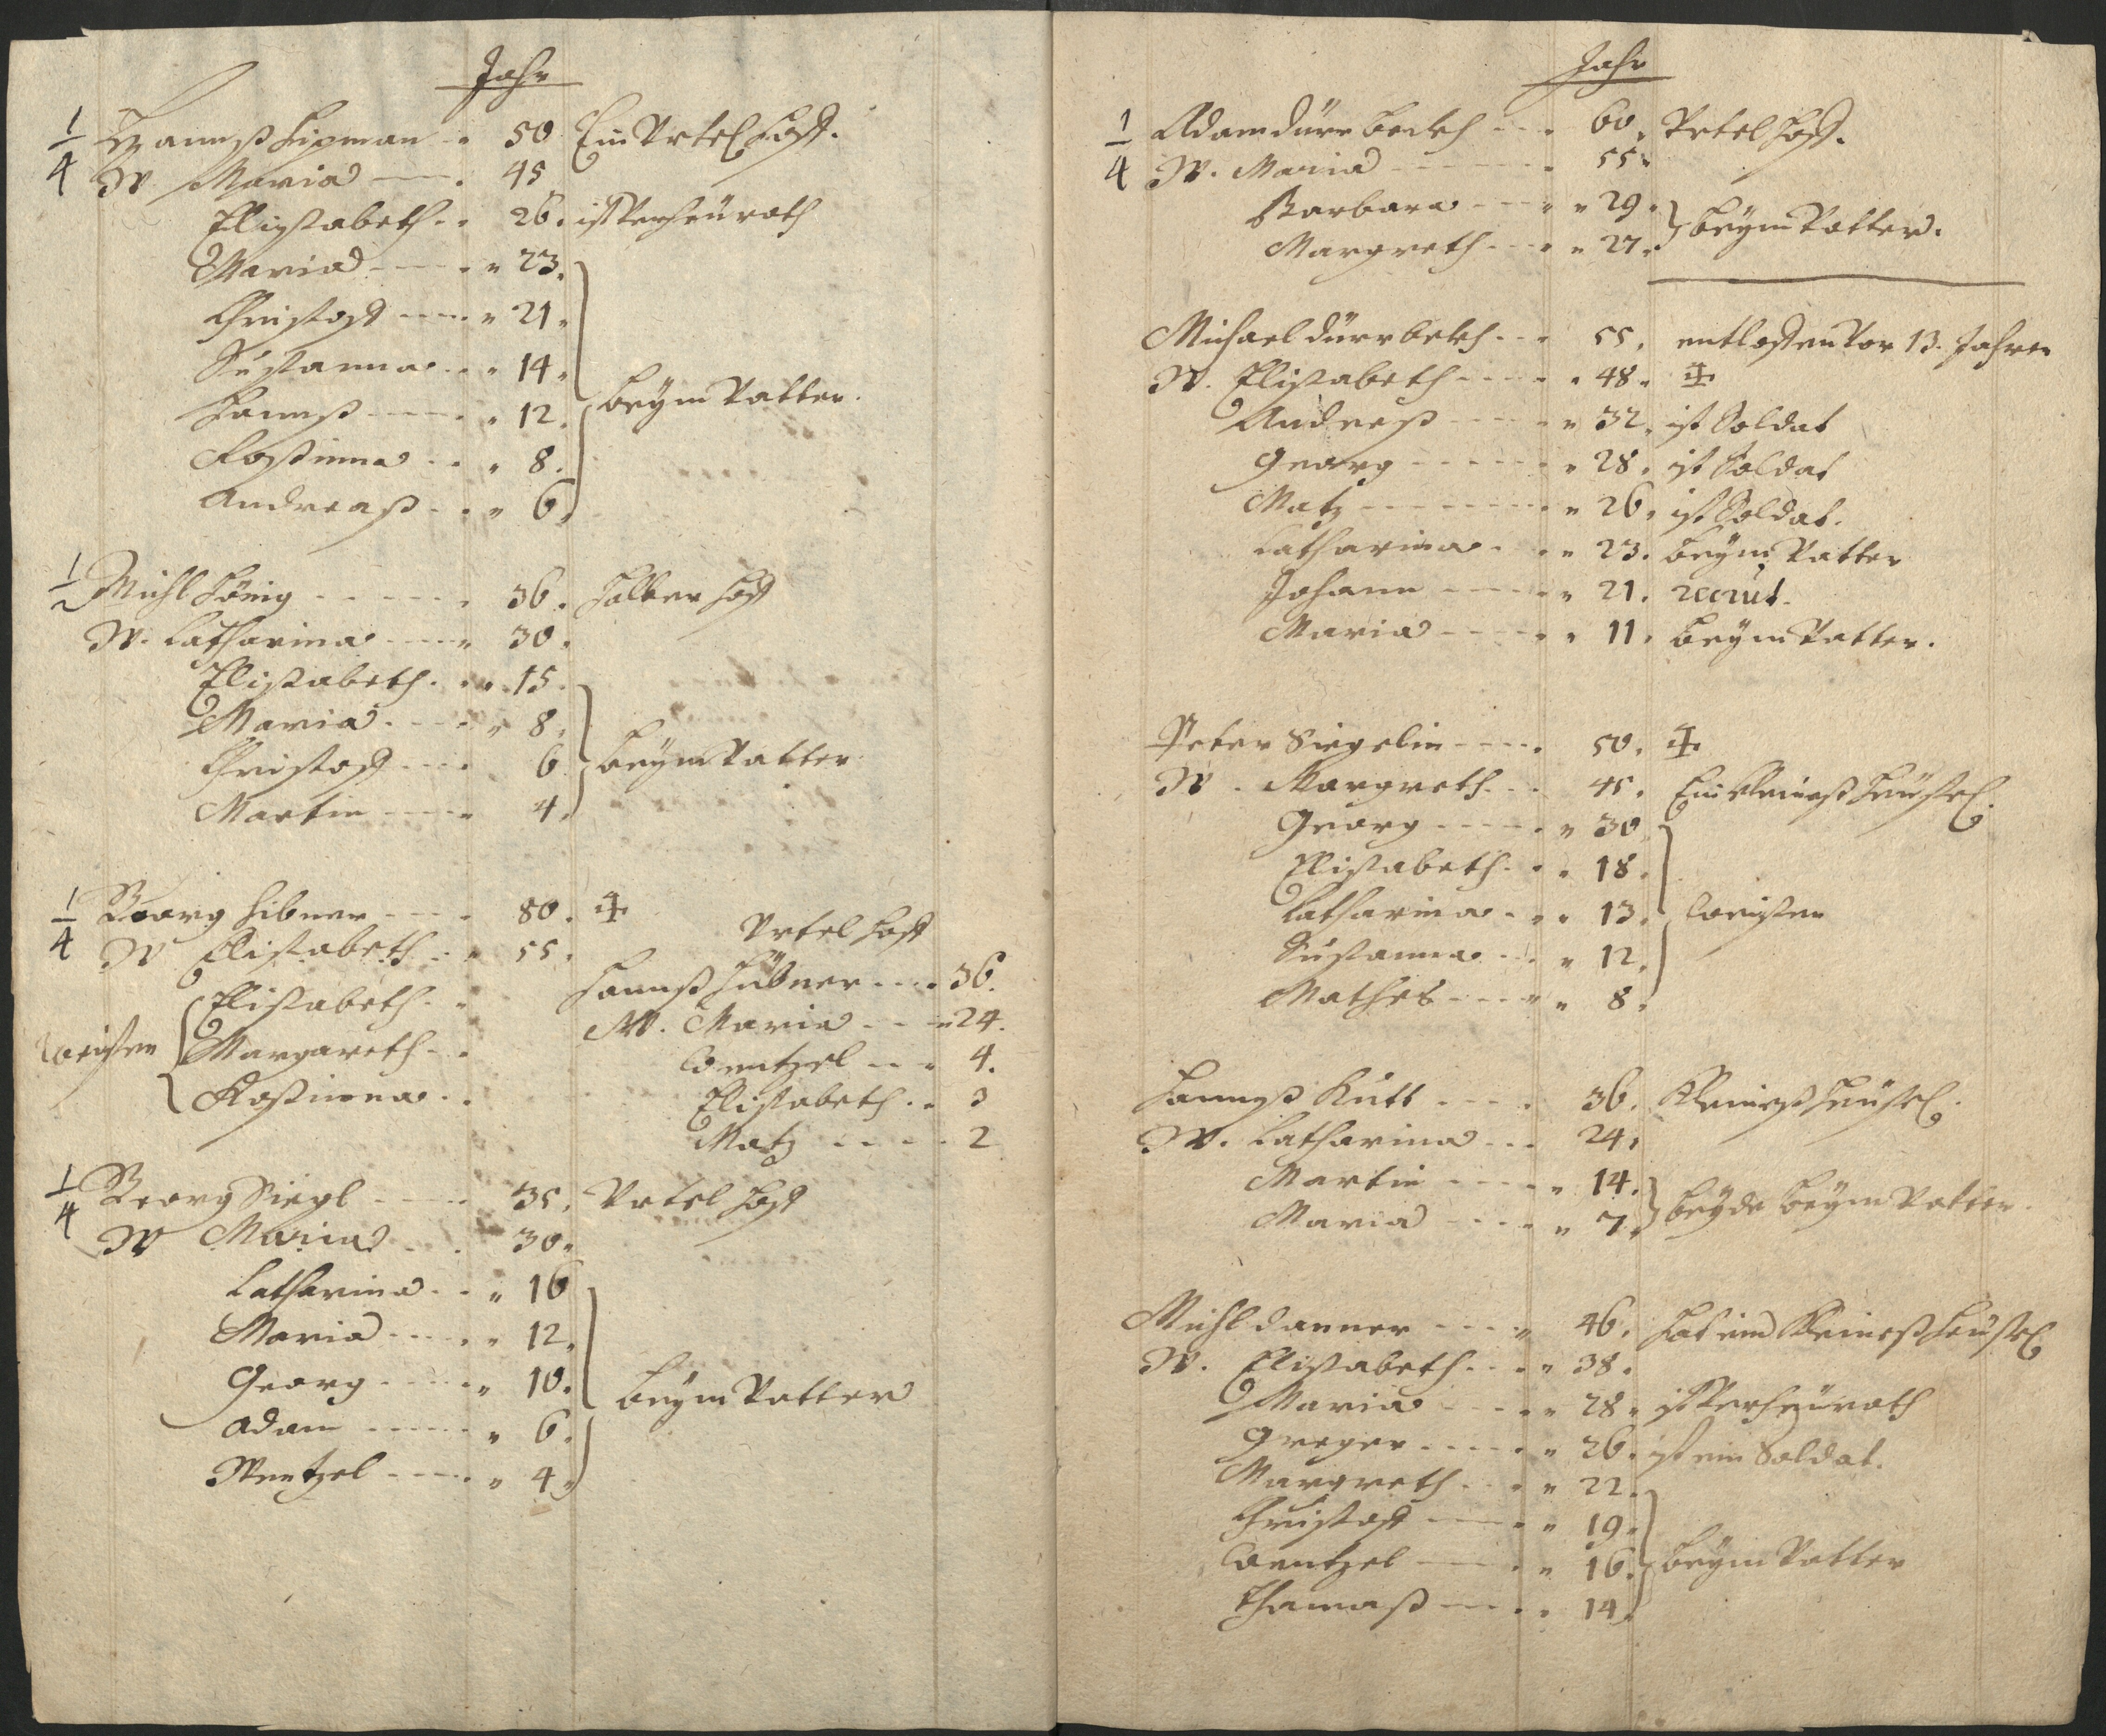 Jahr
1/4 Hannß Lipman 50 Ein Vrtel Hoff.
W Maria 45
Elisabeth 26. ist Verheürath
Maria 23.
Christoff 21.
Susanna 14.
Hannß 12. beym Vatter.
Rossinna 8.
Andreaß 6.
1/2 Michl König 36. Halber Hoff
W. Catharina 30.
Elisabeth 15.
Maria 8.
Christoff 6 beym Vatter
Martin 4.
1/4 Georg Hibner 80. ‡ Vrtel Hoff
W Elisabeth 55.
Waißen Elisabeth
Margareth
Rossinna
Hannß Hübner 36.
W. Maria 24.
Wentzel 4.
Elisabeth 3
Matz 2
1/4 Georg Siegl 35. Vrtel Hoff
W Maria 30.
Catharina 16
Maria 12.
Georg 10. beym Vatter
Adam 6.
Wentzel 4.
Jahr
1/4 Adam dürr beckh 60. Vrtel Hoff.
W. Maria 55.
Barbara 29. beym Vatter.
Margreth 27.
Michael dürrbekh 55. entloffen Vor 13. Jahren
W. Elisabeth 48. ‡
Andreß 32. ist Soldat
Georg 28. ist Soldat
Matz 26. ist Soldat.
Catharina 23. beym Vatter
Johann 21. recrut.
Maria 11. beym Vatter.
Peter Siegelin 50. ‡
W. Margreth 45. Ein Kleineß Heüsel.
Georg 30
Elisabeth 18.
Catharina 13. Waißen
Susanna 12.
Mathes 8.
Hannß Kutt 36. Kleineß Heüsel.
W. Catharina 24.
Martin 14. beyde beym Vatter.
Maria 7.
Michl danner 46. Hat ein Kleineß Heüsel
W. Elisabeth 38.
Maria 28. ist Verheürath
Greger 26. ist ein Soldat.
Margreth 22.
Christoff 19.
Wentzel 16. beym Vatter
Thamaß 14.